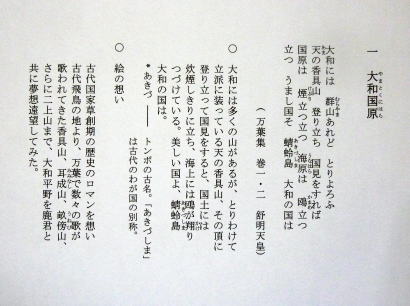 一　大和国原
やまとくにはら
大和には　群山あれど　とりよろふ
むらやま
天の香具山　登り立ち　国見をすれば
国原は　煙立つ立つ　海原は　鴎立つ
立つ　うまし国そ　蜻蛉島　大和の国は
（万葉集　巻一・二　舒明天皇）
○　大和には多くの山があるが、とりわけて
立派に装っている天の香具山、その頂に
登り立って国見をすると、国土には
炊煙しきりに立ち、海上には鴎が翔り
つづけている。美しい国よ、蜻蛉島
大和の国は。
＊あきづ ―― トンボの古名。「あきづしま」
は古代のわが国の別称。
○　絵の想い
古代国家草創期の歴史のロマンを想い
古代飛鳥の地より、万葉で数々の歌が
歌われてきた香具山、耳成山、畝傍山、
さらに二上山まで、大和平野を鹿君と
共に夢想遠望してみた。